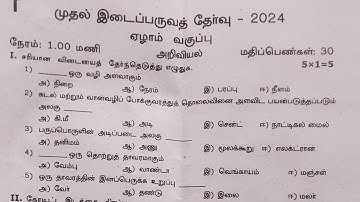 முதல் இடைப்பருவத் தேர்வு - 2024
ஏழாம் வகுப்பு
நேரம்: 1.00 மணி அறிவியல் மதிப்பெண்கள்: 30
I சரியான விடையைத் தேர்ந்தெடுத்து எழுதுக. 5×1=5
1) ______ ஒரு வழி அளவாகும்
அ) நிறை ஆ) நேரம் இ) பரப்பு ஈ) நீளம்
2) கடல் மற்றும் வான்வழிப் போக்குவரத்துத் தொலைவினை அளவிட பயன்படுத்தப்படும்
அலகு ______
அ) கி.மீ ஆ) அடி இ) சென்ட் ஈ) நாட்டிகல் மைல்
3) பருப்பொருளின் அடிப்படை அலகு ______
அ) தனிமம் ஆ) அணு இ) மூலக்கூறு ஈ) எலக்ட்ரான்
4) ______ ஒரு தொற்றுத் தாவரமாகும்
அ) வேம்பு ஆ) வாண்டா இ) வெங்காயம் ஈ) மஞ்சள்
5) ஒரு தாவரத்தின் இனப்பெருக்க உறுப்பு ______
அ) வேர் ஆ) தண்டு இ) இலை ஈ) மலர்
II.